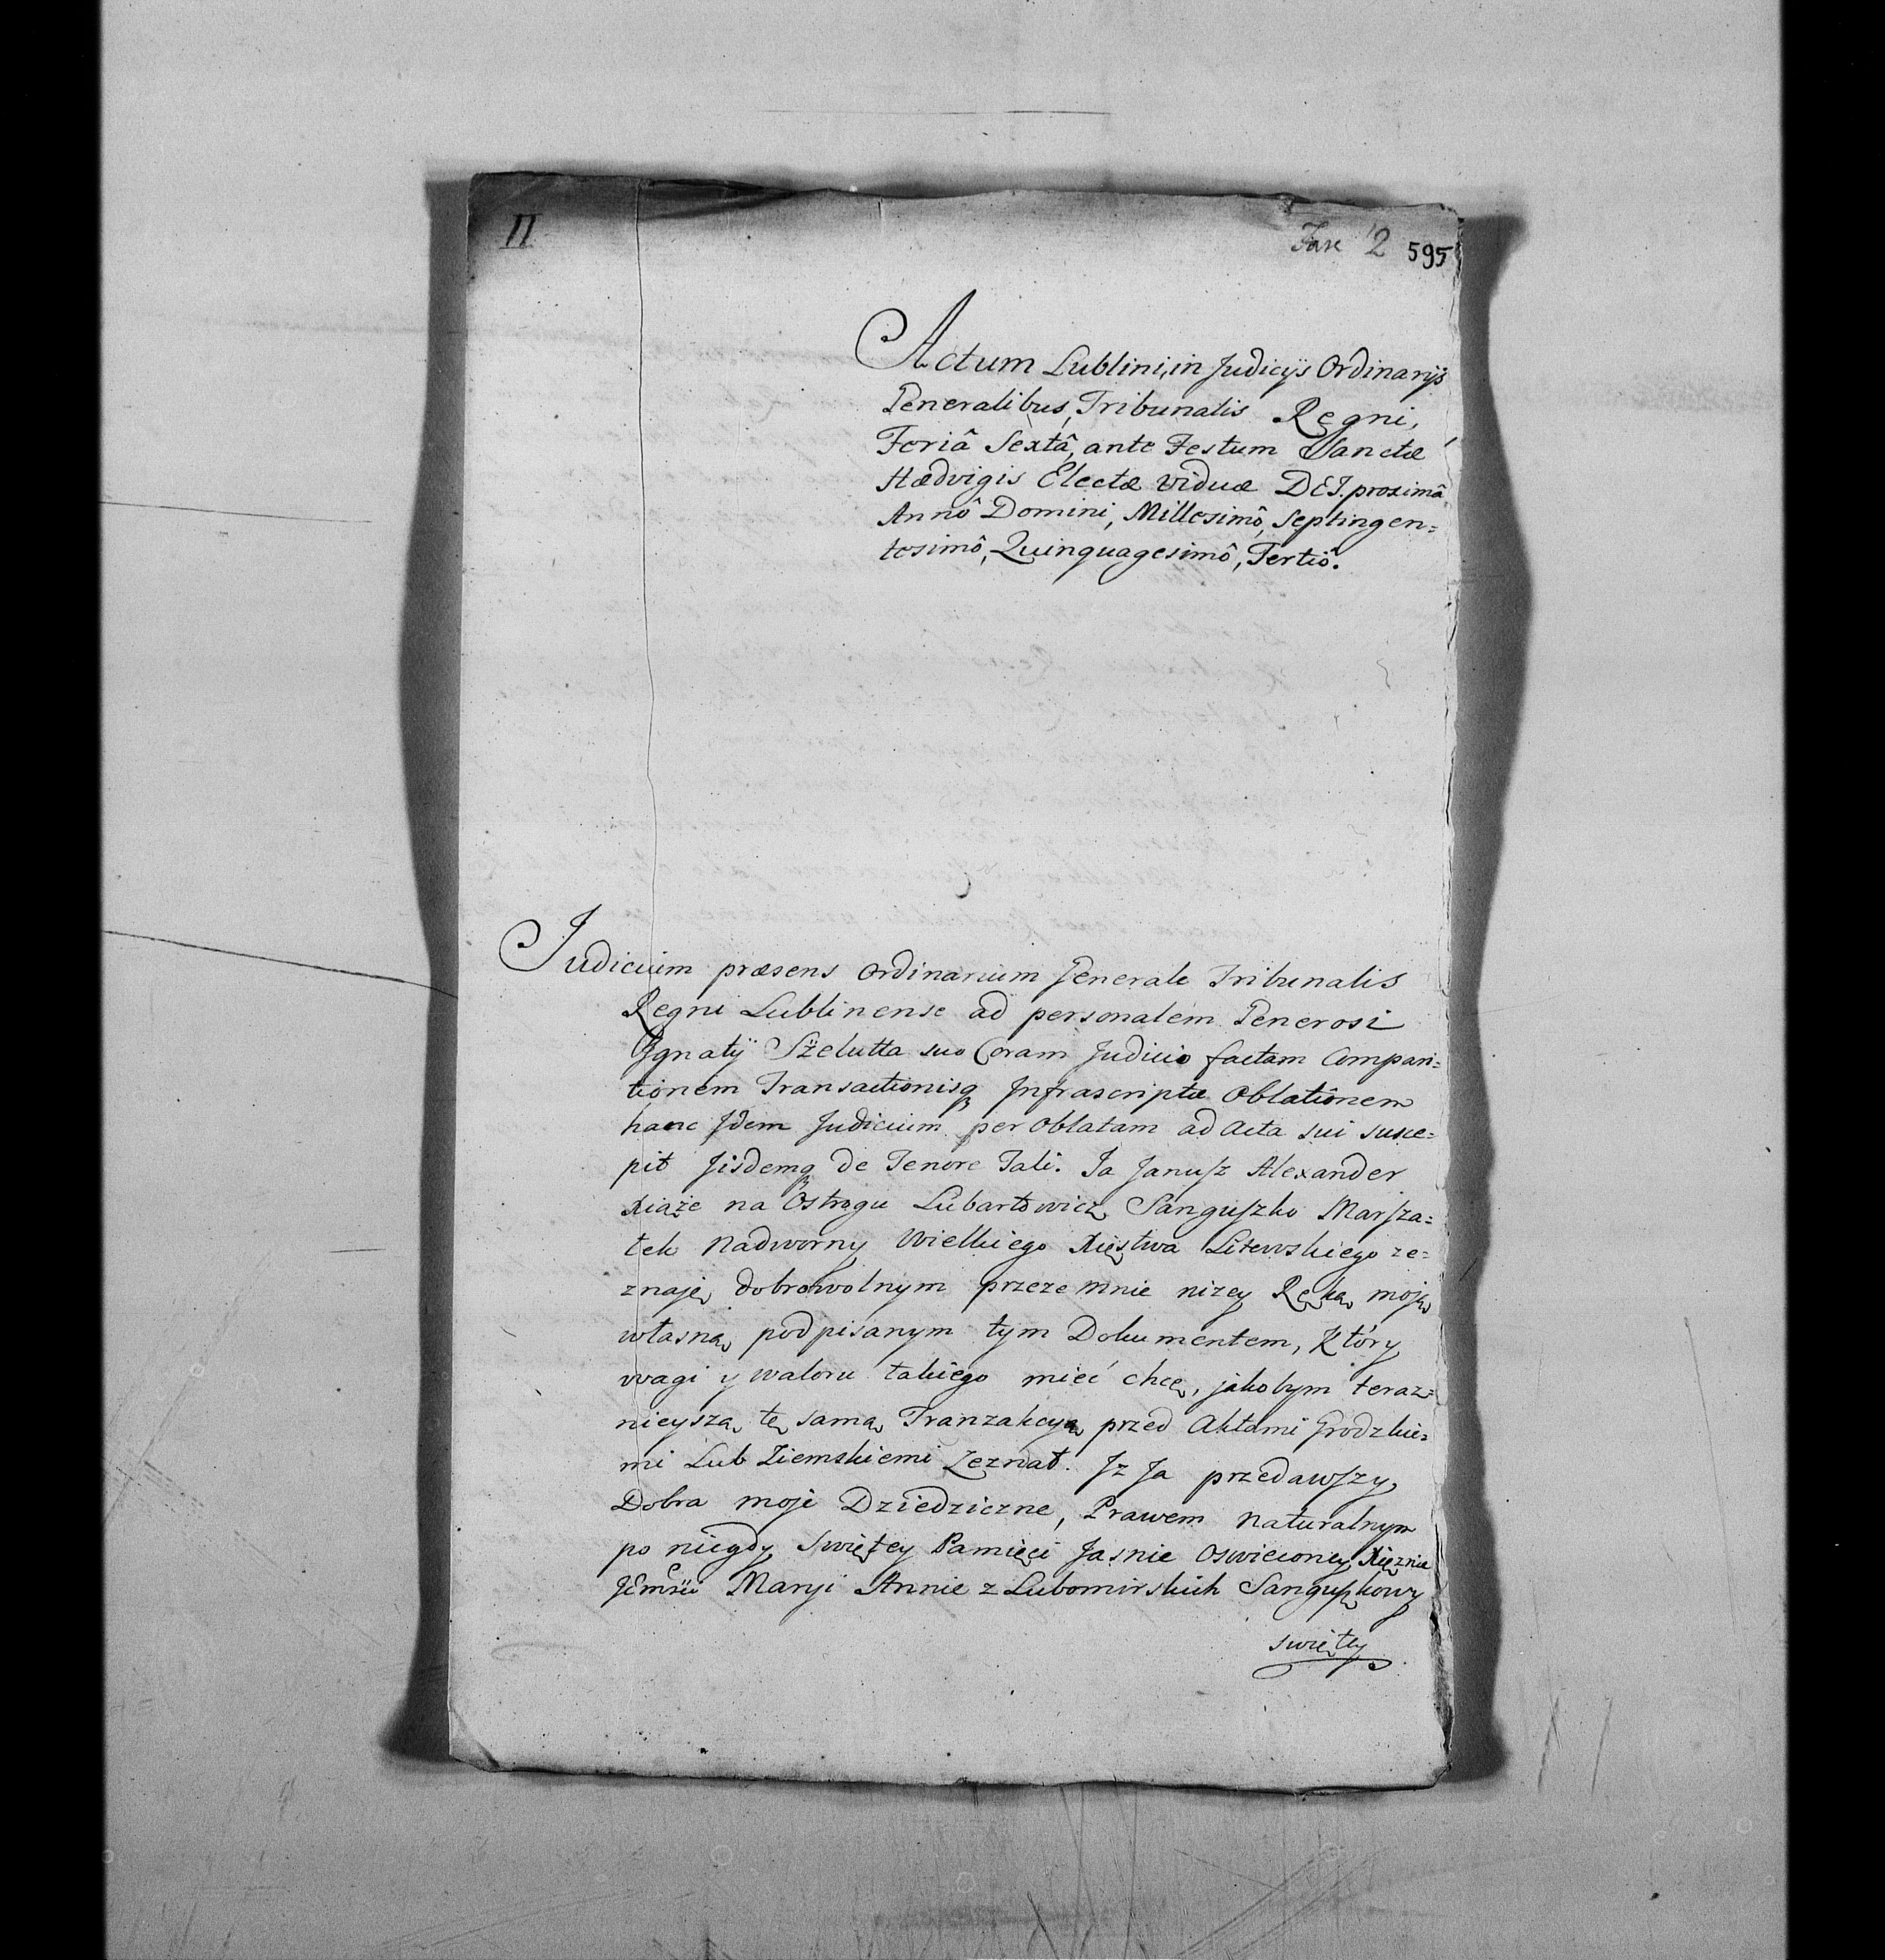 11
Fasc 2 595
Actum Lublini, in Judicijs Ordinarijs
Generalibus, Tribunalis Regni,
Feriâ Sextâ, ante Festum Sanctæ
Hædvigis Electæ viduæ DEI. proximâ
Annô Domini, Millesimô, Septingen=
tesimô, Quinquagesimô, Tertiô.
Judicium præsens Ordinarium Generale Tribunalis
Regni Lublinense ad personalem Generosi
Ignatij Szelutta suo Coram Judicio factam Compari=
tionem Transactionisq Infrascriptæ Oblationem
hanc Idem Judicium per Oblatam ad Acta sui susce=
pit Iisdemq de Tenore Tali. Ja Janusz Alexander
Xiąże na Ostrogu Lubartowicz Sanguszko Marsza=
łek Nadworny Wielkiego Xięstwa Litewskiego ze=
znaję dobrowolnym przeze mnie niżey Ręką moją
własną podpisanym tym Dokumentem, Który
wagi y waloru takiego mieć chcę, jakobym teraz=
nieyszą tę samą Tranzakcyą przed Aktami Grodzkie=
mi Lub Ziemskiemi Zeznał. Iz Ja przedawszy
Dobra moje Dziedziczne, Prawem naturalnym
po niegdy Swiętey Pamięci Jasnie Oswieconey Xiężnie
JEmsci Maryi Annie z Lubomirskich Sanguszkowy
swiętey